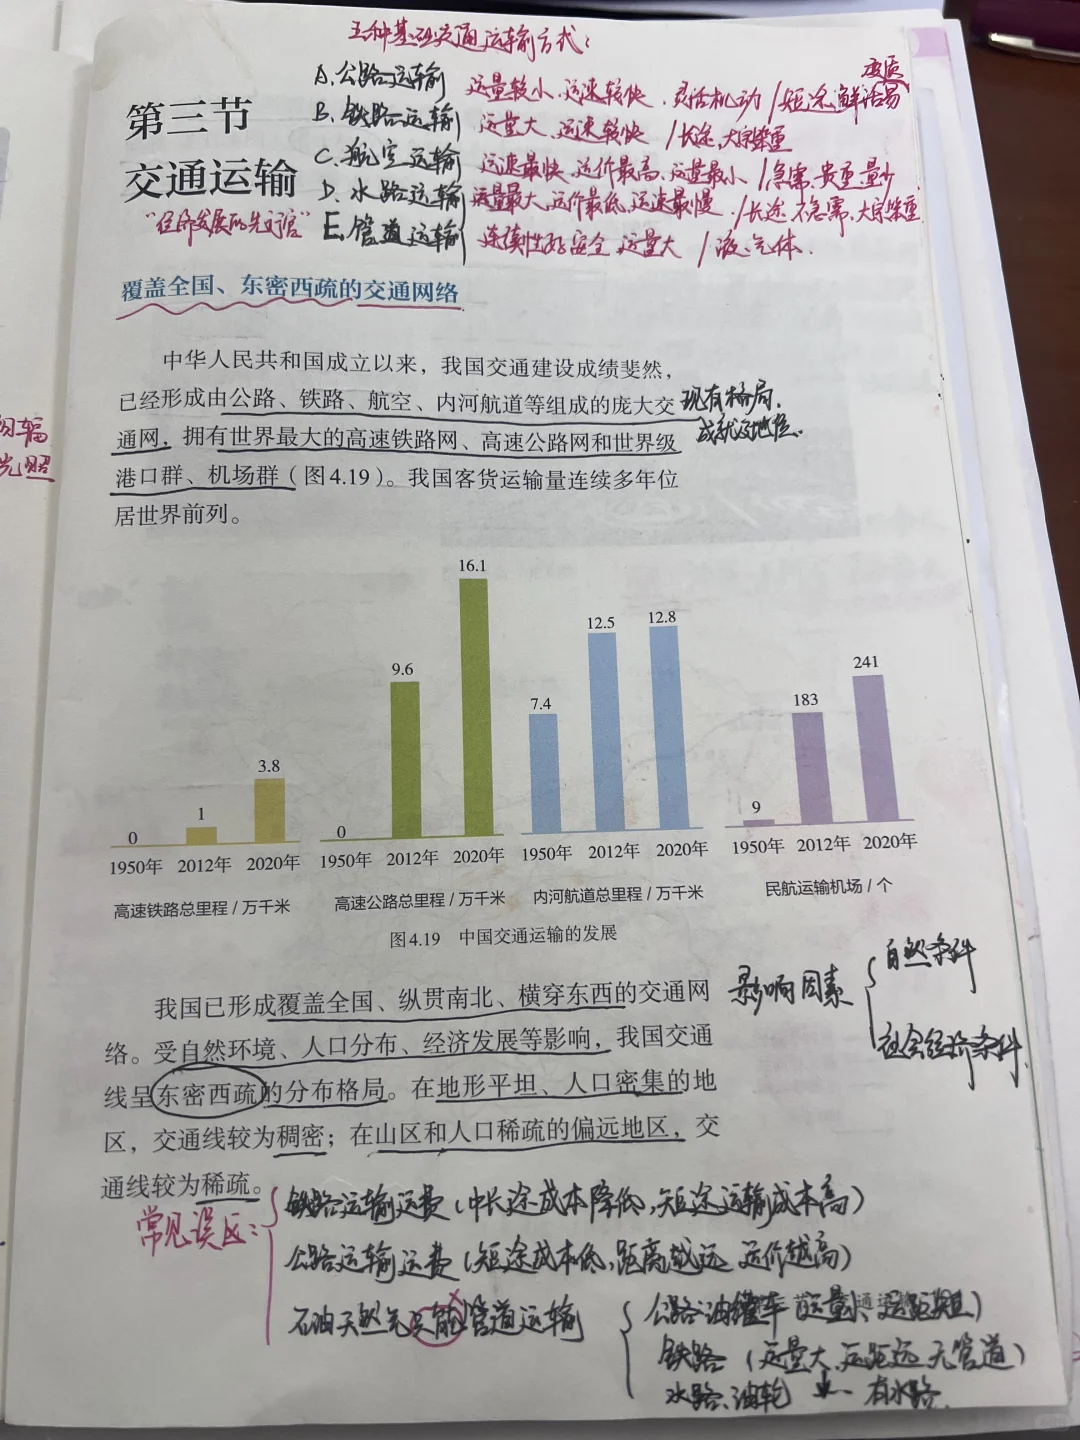 五种基础交通运输方式：
第三节
交通运输
"经济发展的先行官"
A.公路运输 运量较小、运速较快、灵活机动 / 短途、鲜活易变质
B.铁路运输 运量大、运速较快 / 长途、大宗笨重
C.航空运输 运速最快、运价最高、运量最小 / 急需、贵重、量少
D.水路运输 运量最大、运价最低、运速最慢 / 长途、不急需、大宗笨重
E.管道运输 连续性好、安全、运量大 / 液、气体.
覆盖全国、东密西疏的交通网络
中华人民共和国成立以来，我国交通建设成绩斐然，
已经形成由公路、铁路、航空、内河航道等组成的庞大交
通网，拥有世界最大的高速铁路网、高速公路网和世界级
港口群、机场群（图4.19）。我国客货运输量连续多年位
居世界前列。
现有格局，
成就及地位.
光照
0 1 3.8
1950年 2012年 2020年
高速铁路总里程 / 万千米
0 9.6 16.1
1950年 2012年 2020年
高速公路总里程 / 万千米
7.4 12.5 12.8
1950年 2012年 2020年
内河航道总里程 / 万千米
9 183 241
1950年 2012年 2020年
民航运输机场 / 个
图4.19 中国交通运输的发展
我国已形成覆盖全国、纵贯南北、横穿东西的交通网
络。受自然环境、人口分布、经济发展等影响，我国交通
线呈东密西疏的分布格局。在地形平坦、人口密集的地
区，交通线较为稠密；在山区和人口稀疏的偏远地区，交
通线较为稀疏。
影响因素
自然条件
社会经济条件
常见误区：
铁路运输运费（中长途成本降低，短途运输成本高）
公路运输运费（短途成本低，距离越远 运价越高）
石油天然气只能管道运输
公路：油罐车（运量小、运距短）
铁路（运量大、运距远 无管道）
水路、油轮 有水路.